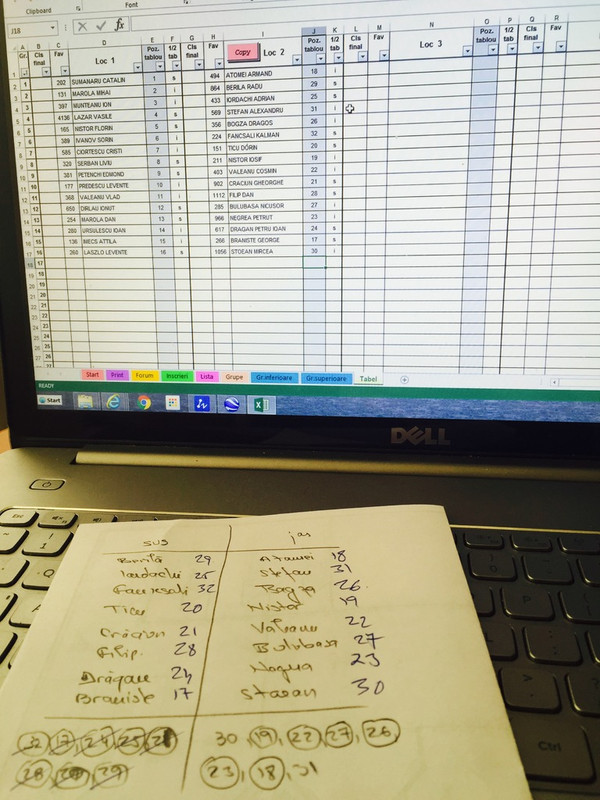 Clipboard Font
J18 fx
A B C D E F G H I J K L M N O P Q R
Gr. Cls final Fav Loc 1 Poz. tablou 1/2 tab Cls final Fav Copy Loc 2 Poz. tablou 1/2 tab Cls final Fav Loc 3 Poz. tablou 1/2 tab Cls final Fav
1 202 SUMANARU CATALIN 1 s 494 ATOMEI ARMAND 18 i
2 131 MAROLA MIHAI 2 i 864 BERILA RADU 29 s
3 397 MUNTEANU ION 3 i 433 IORDACHI ADRIAN 25 s
4 4136 LAZAR VASILE 4 s 569 STEFAN ALEXANDRU 31 i
5 165 NISTOR FLORIN 5 s 356 BOGZA DRAGOS 26 i
6 389 IVANOV SORIN 6 i 224 FANCSALI KALMAN 32 s
7 585 CIORTESCU CRISTI 7 i 151 TICU DORIN 20 s
8 320 SERBAN LIVIU 8 s 211 NISTOR IOSIF 19 i
9 381 PETENCHI EDMOND 9 s 403 VALEANU COSMIN 22 i
10 177 PREDESCU LEVENTE 10 i 902 CRACIUN GHEORGHE 21 s
11 368 VALEANU VLAD 11 i 1112 FILIP DAN 28 s
12 650 DIRLAU IONUT 12 s 285 BULUBASA NICUSOR 27 i
13 254 MAROLA DAN 13 s 966 NEGREA PETRUT 23 i
14 280 URSULESCU IOAN 14 i 617 DRAGAN PETRU IOAN 24 s
15 136 MECS ATTILA 15 i 266 BRANISTE GEORGE 17 s
16 260 LASZLO LEVENTE 16 s 1056 STOEAN MIRCEA 30 i
17
18
19
20
21
22
23
24
25
26
Start Print Forum Inscrieri Lista Grupe Gr.inferioare Gr.superioare Tabel
READY
Start
DELL
sus jos
Berilă 29 Atomei 18
Iordachi 25 Stefan 31
Fancsali 32 Bogza 26
Ticu 20 Nistor 19
Crăciun 21 Valeanu 22
Filip 28 Bulubasa 27
Drăgan 24 Negrea 23
Braniste 17 Stoean 30
32, 17, 24, 25, 21 30, 19, 22, 27, 26,
28 20, 29 23, 18, 31
Ctrl